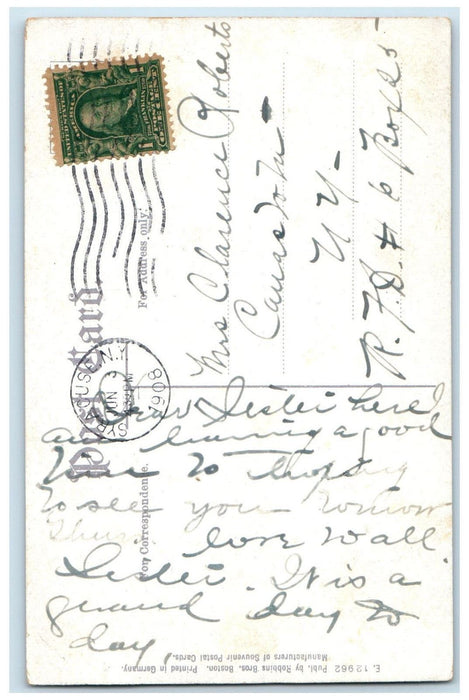 Post Card.
For Address only.
For Correspondence.
SYRACUSE, N.Y.
JUN 3
PM
1908
Mrs Clarence Roberts
Canastota
N Y
R. F. D. # 6 Box 55
Dear Sister here I
am having a good
time
to see you tomorow
love to all
Sister. It is a
grand day to
day,
E. 12962 Publ. by Robbins Bros. Boston. Printed in Germany.
Manufacturers of Souvenir Postal Cards.